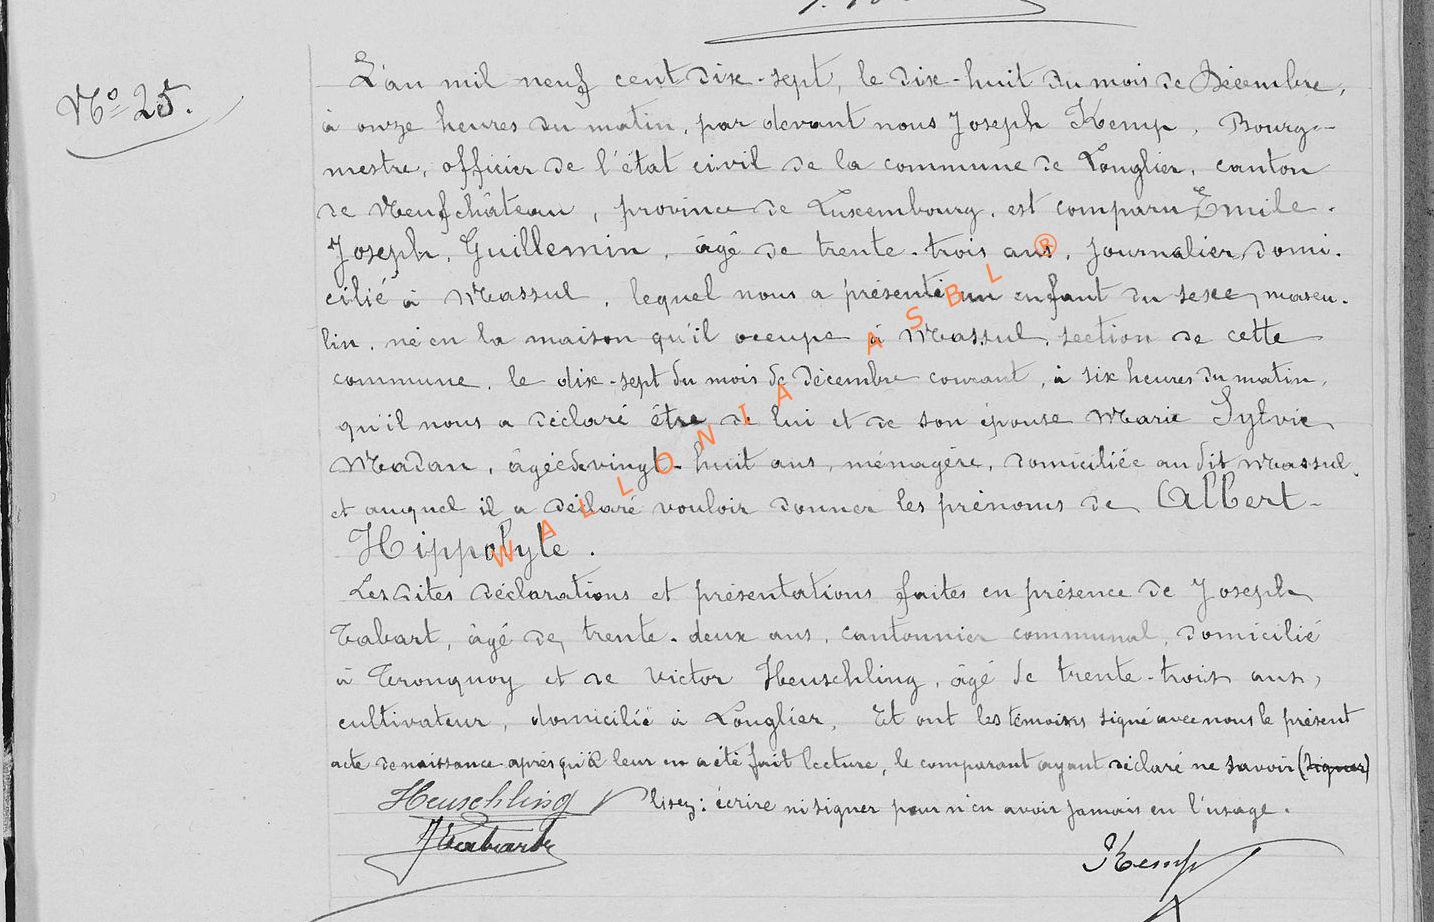 Nº 25.
L'an mil neuf cent dix-sept, le dix-huit du mois de Décembre,
à onze heures du matin, par devant nous Joseph Kemp, Bourg-
mestre, officier de l'état civil de la commune de Longlier, canton
de Neufchâteau, province de Luxembourg, est comparu Emile-
Joseph, Guillemin, âgé de trente-trois ans, journalier, domi-
cilié à Massul, lequel nous a présenté un enfant du sexe mascu-
lin, né en la maison qu'il occupe à Massul, section de cette
commune, le dix-sept du mois de décembre courant, à six heures du matin,
qu'il nous a déclaré être de lui et de son épouse Marie Sylvie
Madan, âgée de vingt-huit ans, ménagère, domiciliée au dit Massul,
et auquel il a déclaré vouloir donner les prénoms de Albert-
Hippolyte.
Les dites déclarations et présentations faites en présence de Joseph
Tabart, âgé de trente-deux ans, cantonnier communal, domicilié
à Tronquoy et de Victor Heuschling, âgé de trente-trois ans,
cultivateur, domicilié à Longlier. Et ont les témoins signé avec nous le présent
acte de naissance après qu'il leur en a été fait lecture, le comparant ayant déclaré ne savoir (signer)
Heuschling V lisez: écrire ni signer pour n'en avoir jamais eu l'usage.
J Tabart
Kemp
WALLONIA ASBL ®